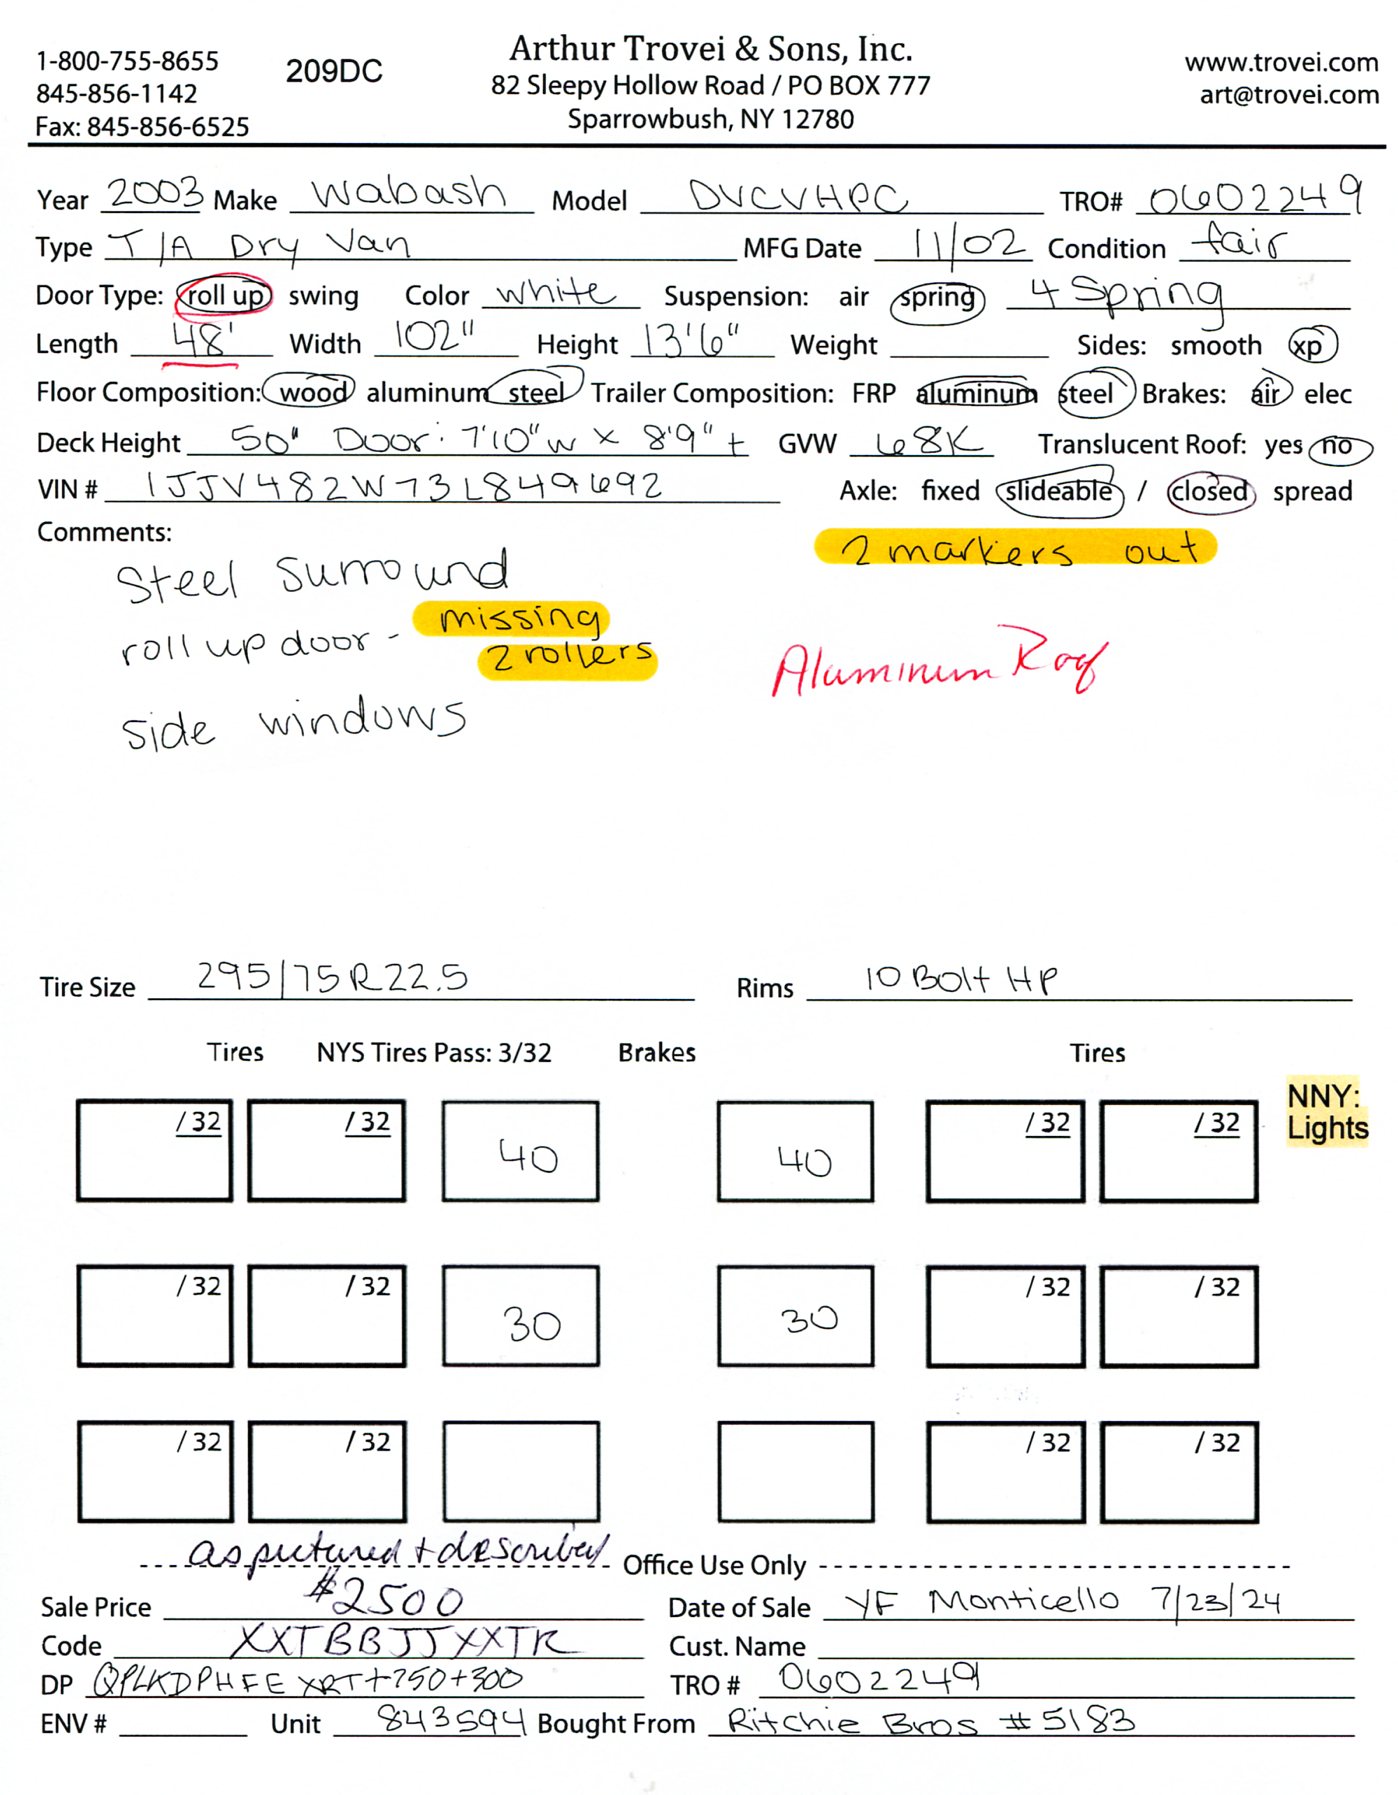 1-800-755-8655
845-856-1142
Fax: 845-856-6525
209DC
Arthur Trovei & Sons, Inc.
82 Sleepy Hollow Road / PO BOX 777
Sparrowbush, NY 12780
www.trovei.com
art@trovei.com
Year 2003 Make Wabash Model DVCVHPC TRO# 0602249
Type T/A Dry Van MFG Date 11/02 Condition fair
Door Type: roll up swing Color white Suspension: air spring 4 Spring
Length 48' Width 102" Height 13'6" Weight Sides: smooth xp
Floor Composition: wood aluminum steel Trailer Composition: FRP aluminum steel Brakes: air elec
Deck Height 50" Door: 7'10"w x 8'9"t GVW 68K Translucent Roof: yes no
VIN # 1JJV482W73L849692 Axle: fixed slideable / closed spread
Comments:
2 markers out
Steel surround
roll up door - missing
2 rollers
Aluminum Roof
side windows
Tire Size 295/75R22.5 Rims 10 Bolt HP
Tires NYS Tires Pass: 3/32 Brakes Tires
NNY:
Lights
/32 /32 40 40 /32 /32
/32 /32 30 30 /32 /32
/32 /32 /32 /32
as pictured + described Office Use Only
Sale Price $2500 Date of Sale YF Monticello 7/23/24
Code XXTBBJJXXTR Cust. Name
DP QPLKDPHFEXRT+750+300 TRO # 0602249
ENV # Unit 843594 Bought From Ritchie Bros #5183